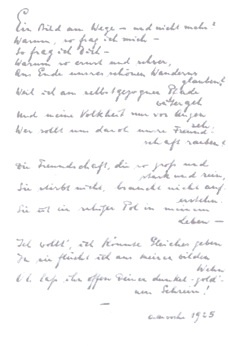 Ein Bild am Wege – und nicht mehr?
Warum, so frag ich mich –
So frag ich Dich –
Warum so ernst und schwer,
Am Ende unsres schönen Wanderns
glauben?
Weil ich am selbstgezognen Pfade
weitergeh
Und meine Volkheit nur vor Augen
seh.
Wer wollt uns darob unsre Freund-
schaft rauben?
Die Freundschaft, die so groß und
stark und rein,
Sie stirbt nicht, braucht nicht auf-
erstehn.
Sie ist ein ruhiger Pol in meinem
Leben –
Ich wollt', ich könnte Gleiches geben
Da ein flücht ich aus meinen wilden
Wehn
laß ihn offen Deiner dunkel-gold-
nen Schrein!
–
1925